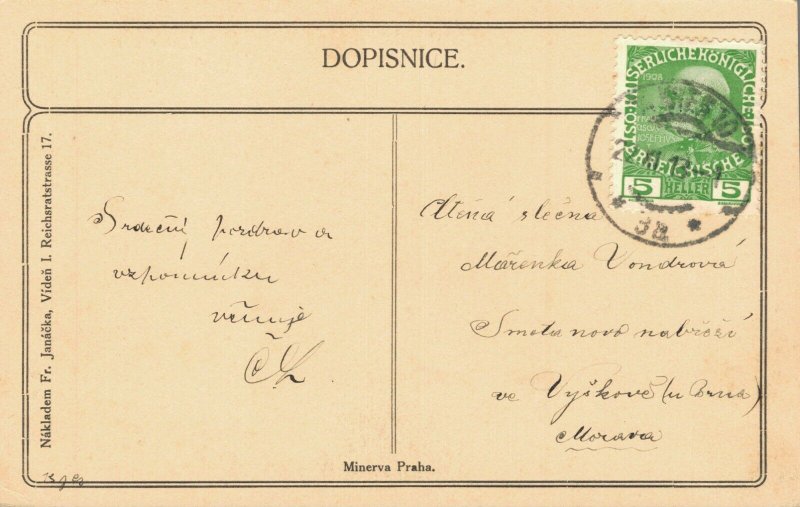 DOPISNICE.
Nákladem Fr. Janáčka, Vídeň I. Reichsratstrasse 17.
Srdečný pozdrav a
vzpomínku
věnuje
ČL
Minerva Praha.
1908
KAISERLICHE KÖNIGLICHE
ÖSTERREICHISCHE
5 HELLER 5
3a
Ctěná slečna
Mařenka Vondrová
Smetanovo nabřeží
ve Vyškově (u Brna)
Morava